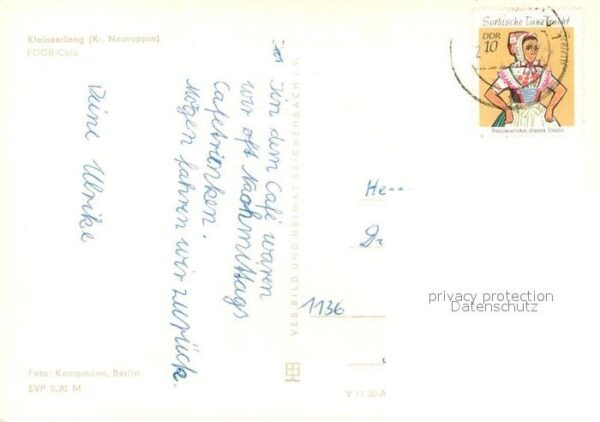 Kleinzerlang (Kr. Neuruppin)
FDGB-Cafe
In dem Café waren
wir oft Nachmittags
Cafetrinken.
Morgen fahren wir zurück.
Deine Ulrike
VEB BILD UND HEIMAT REICHENBACH I. V.
Sorbische Tanztracht
DDR
10
Herr
1136
privacy protection
Datenschutz
Foto: Kampmann, Berlin
EVP 0,20 M
V 11 50 A